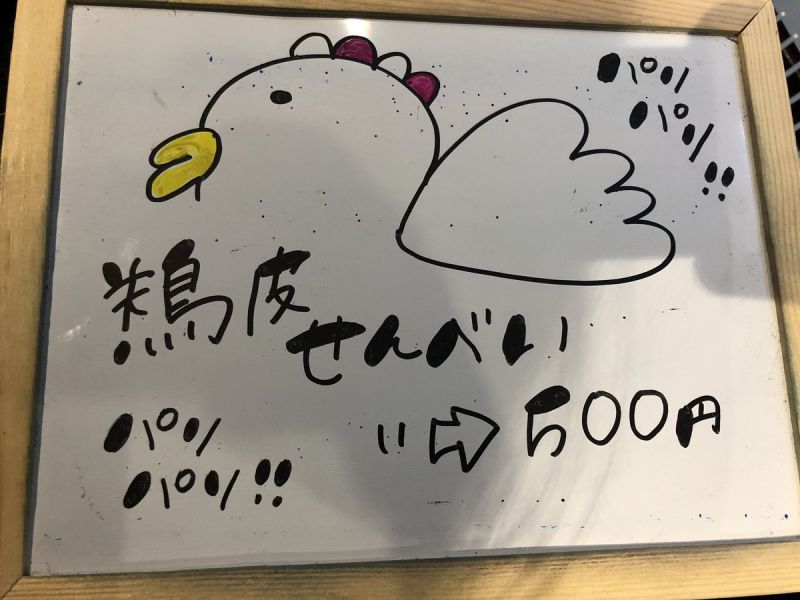 パリ
パリ!!
鶏皮
せんべい
パリ
パリ!!
⇨ 500円